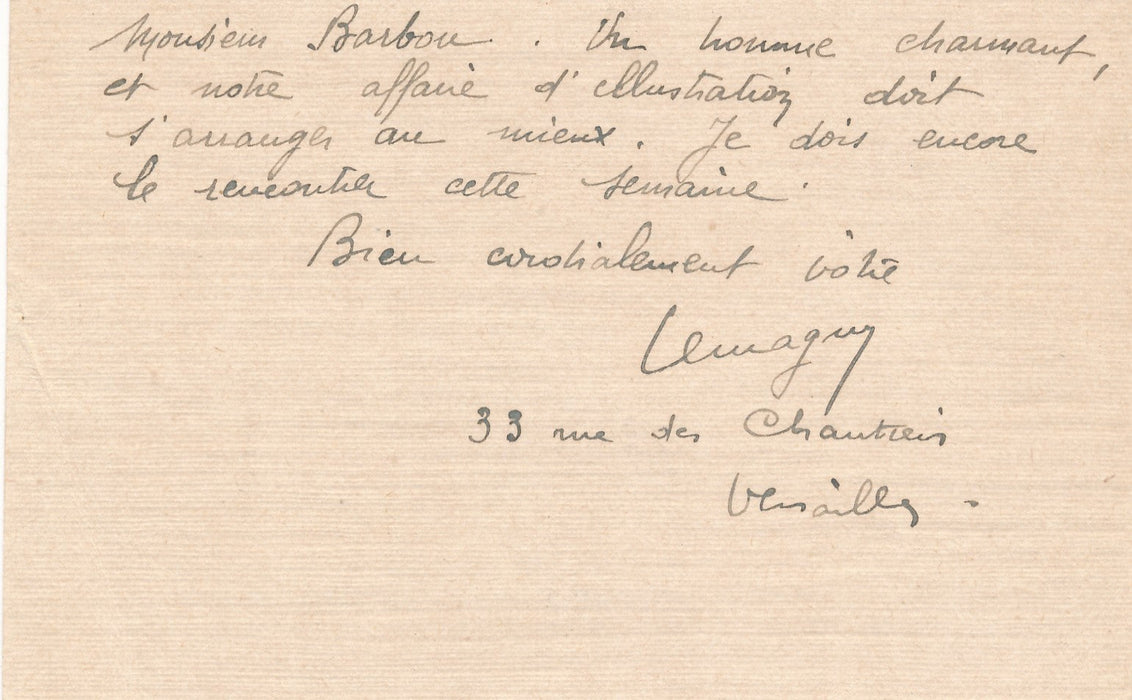 Monsieur Barbou. Un homme charmant,
et notre affaire d'illustration doit
s'arranger au mieux. Je dois encore
le rencontrer cette semaine.
Bien cordialement vôtre
Lemagny
33 rue des Chantiers
Versailles -